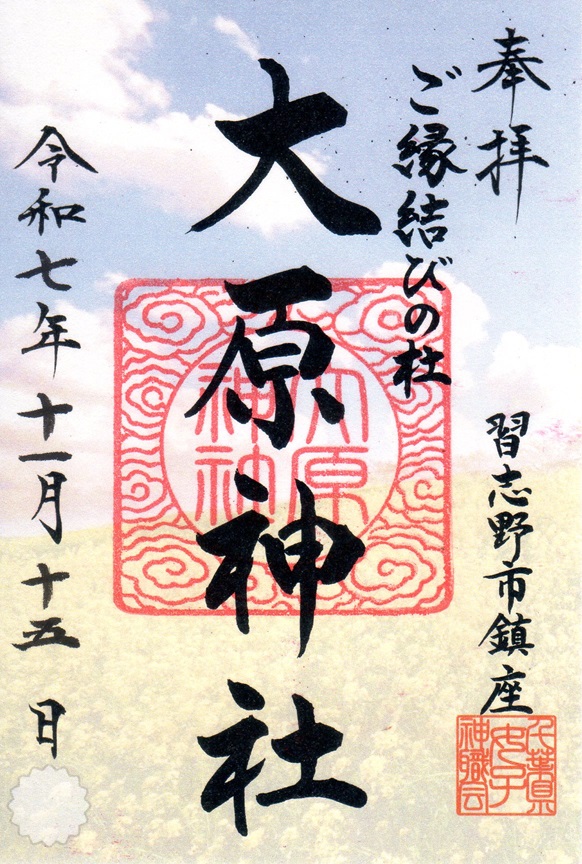 奉拝
ご縁結びの杜
習志野市鎮座
千葉県
女子
神職会
大原神社
大原
神社
令和七年十一月十五日